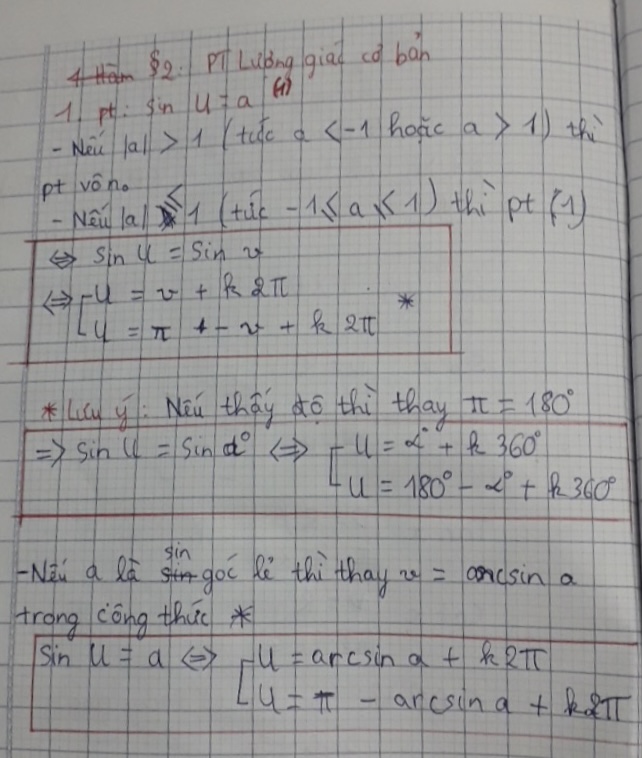 §2: PT Lượng giác cơ bản
1, pt: sin U = a (1)
- Nếu |a| > 1 (tức a < -1 hoặc a > 1) thì
pt vôn0
- Nếu |a| ≤ 1 (tức -1 ≤ a ≤ 1) thì pt (1)
⇔ sin U = sin v
⇔ [ U = v + k2π
U = π - v + k2π *
* Lưu ý: Nếu thấy độ thì thay π = 180°
=> sin U = sin α° ⇔ [ U = α° + k360°
U = 180° - α° + k360°
- Nếu a là sin góc lẻ thì thay v = arcsin a
trong công thức *
sin U = a ⇔ [ U = arcsin a + k2π
U = π - arcsin a + k2π